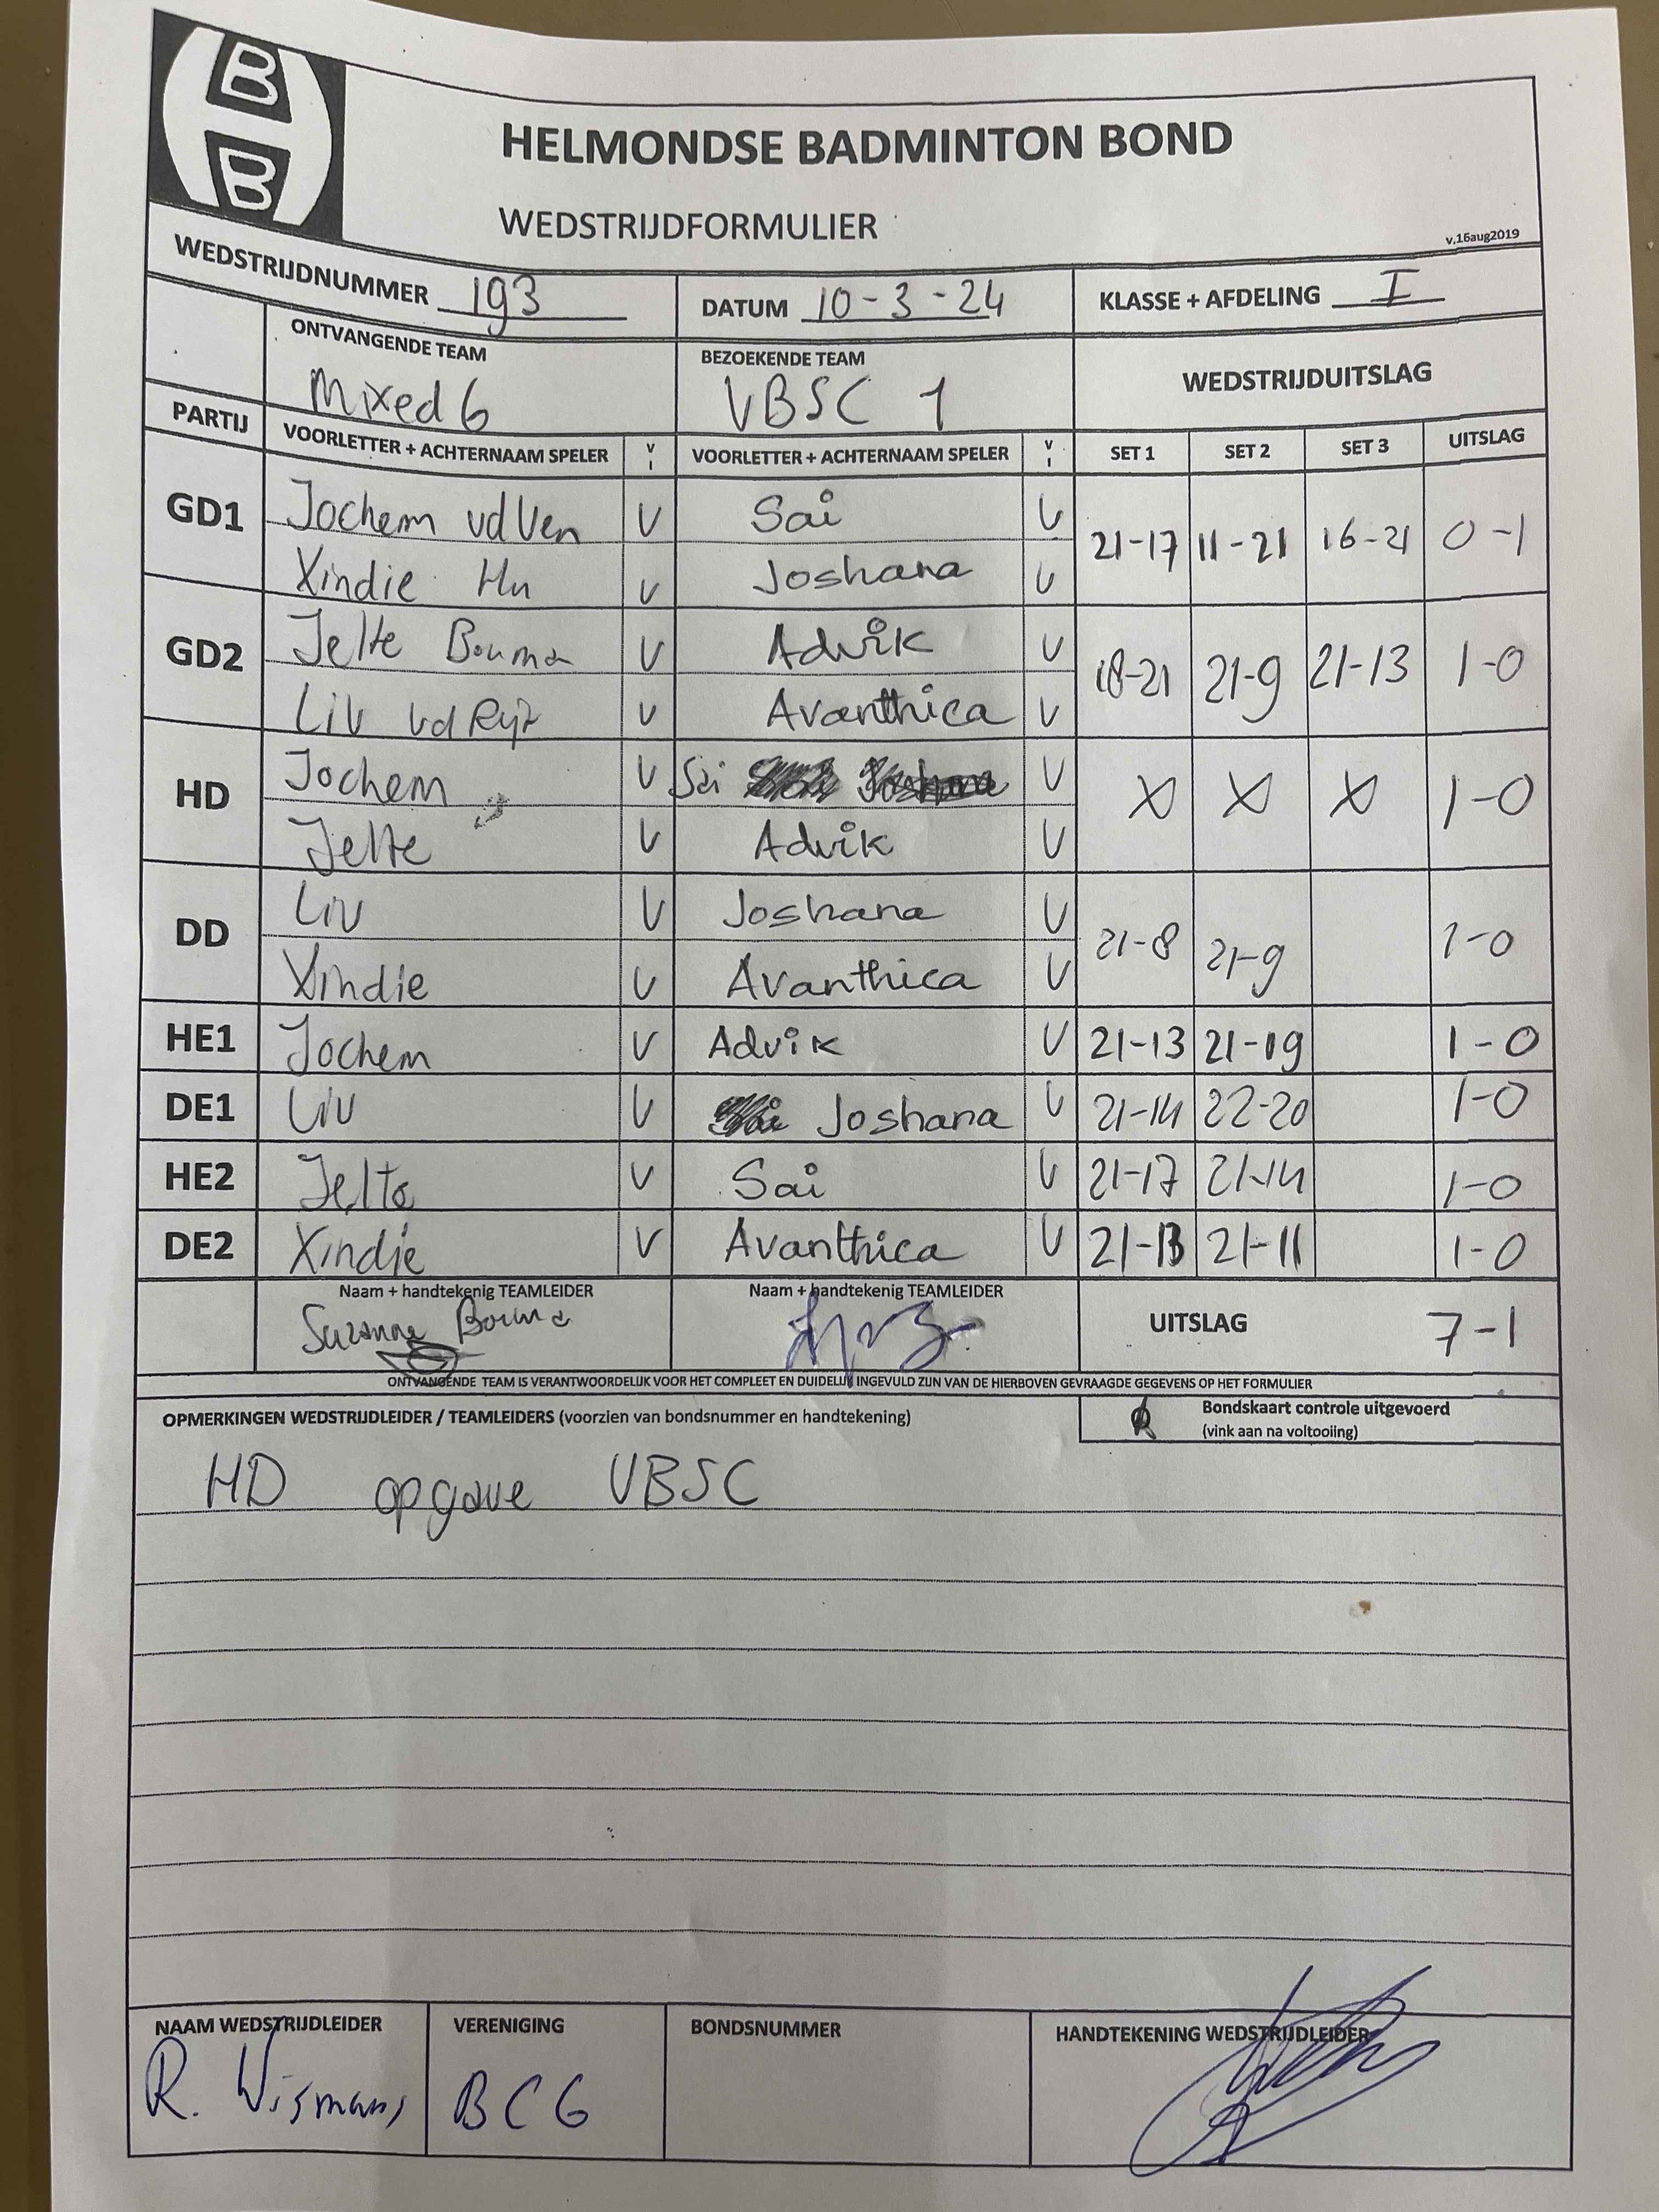 B
B
HELMONDSE BADMINTON BOND
WEDSTRIJDFORMULIER
v.16aug2019
WEDSTRIJDNUMMER 193 DATUM 10-3-24 KLASSE + AFDELING I
ONTVANGENDE TEAM BEZOEKENDE TEAM WEDSTRIJDUITSLAG
Mixed 6 VBSC 1
PARTIJ VOORLETTER + ACHTERNAAM SPELER V I VOORLETTER + ACHTERNAAM SPELER V I SET 1 SET 2 SET 3 UITSLAG
GD1 Jochem vd Ven V Sai V 21-17 11-21 16-21 0-1
Xindie Hu V Joshana V
GD2 Jelte Bouma V Advik V 18-21 21-9 21-13 1-0
Liv vd V Avanthica V
HD Jochem V Sai V X X X 1-0
Jelte V Advik V
DD Liv V Joshana V 21-8 21-9 1-0
Xindie V Avanthica V
HE1 Jochem V Advik V 21-13 21-19 1-0
DE1 Liv V Joshana V 21-14 22-20 1-0
HE2 Jelte V Sai V 21-17 21-14 1-0
DE2 Xindie V Avanthica V 21-13 21-11 1-0
Naam + handtekenig TEAMLEIDER Naam + handtekenig TEAMLEIDER UITSLAG 7-1
Suzanne Bouma
ONTVANGENDE TEAM IS VERANTWOORDELIJK VOOR HET COMPLEET EN DUIDELIJK INGEVULD ZIJN VAN DE HIERBOVEN GEVRAAGDE GEGEVENS OP HET FORMULIER
OPMERKINGEN WEDSTRIJDLEIDER / TEAMLEIDERS (voorzien van bondsnummer en handtekening) Bondskaart controle uitgevoerd
(vink aan na voltooiing)
HD opgave VBSC
NAAM WEDSTRIJDLEIDER VERENIGING BONDSNUMMER HANDTEKENING WEDSTRIJDLEIDER
R. Wismans BCG